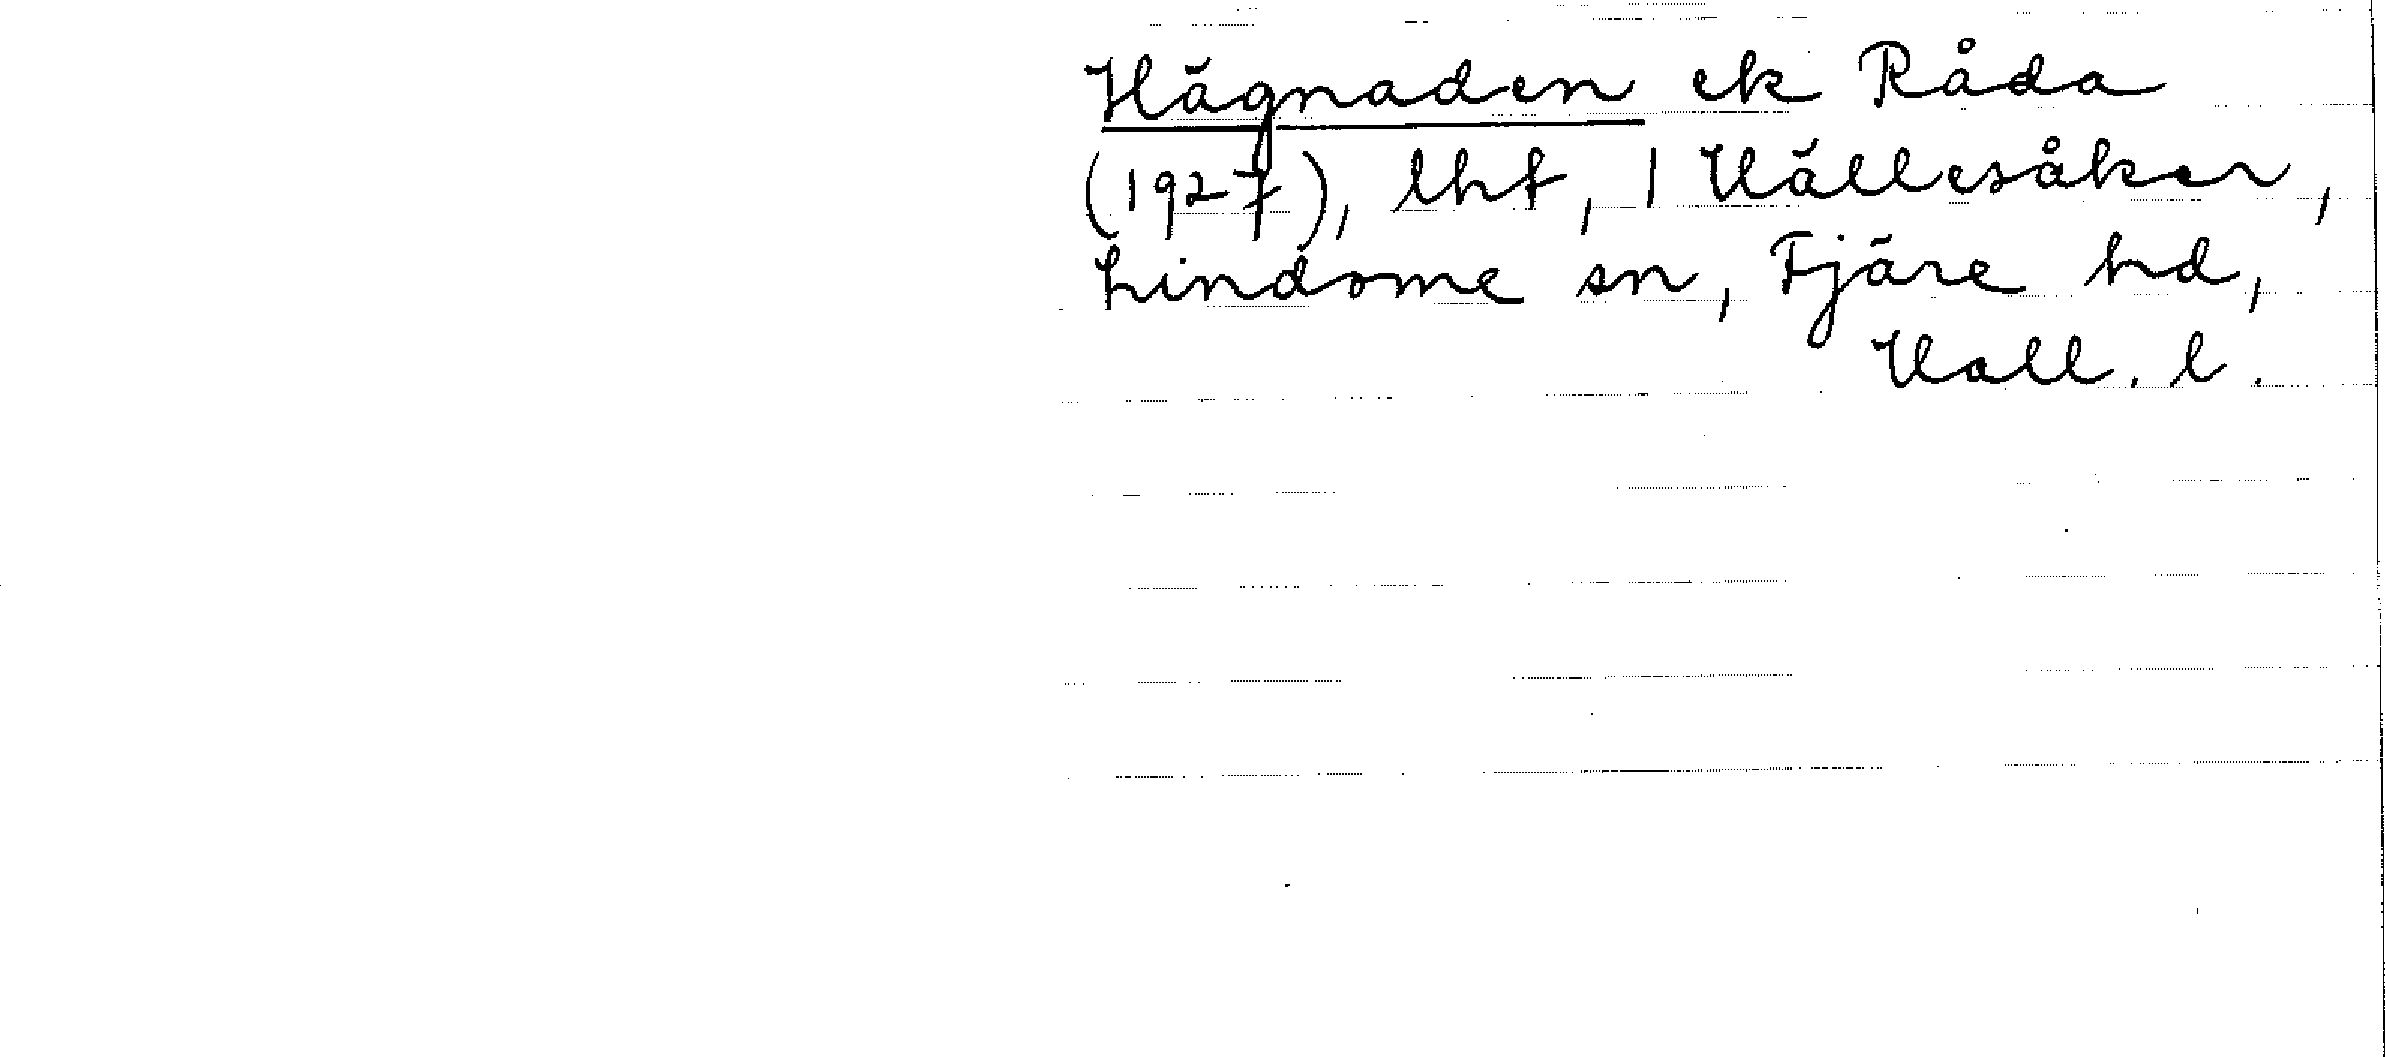 Hägnaden ek Råda
(1927), lht, 1 Hällesåker,
Lindome sn, Fjäre hd,
Hall. l.